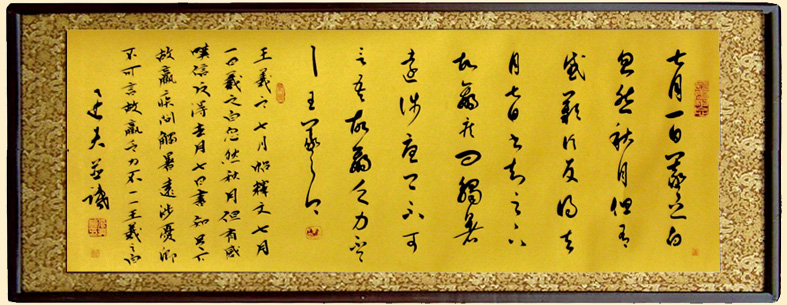 七月一日羲之白
忽然秋月但有
感歎信反得去
月七日書知足下
故羸疾問觸暑
遠涉憂卿不可
言吾故羸乏力不
一一王羲之白
王羲之七月帖釋文七月
一日羲之白忽然秋月但有感
嘆信反得去月七日書知足下
故羸疾問觸暑遠涉憂卿
不可言故羸乏力不一一王羲之白
夫并識